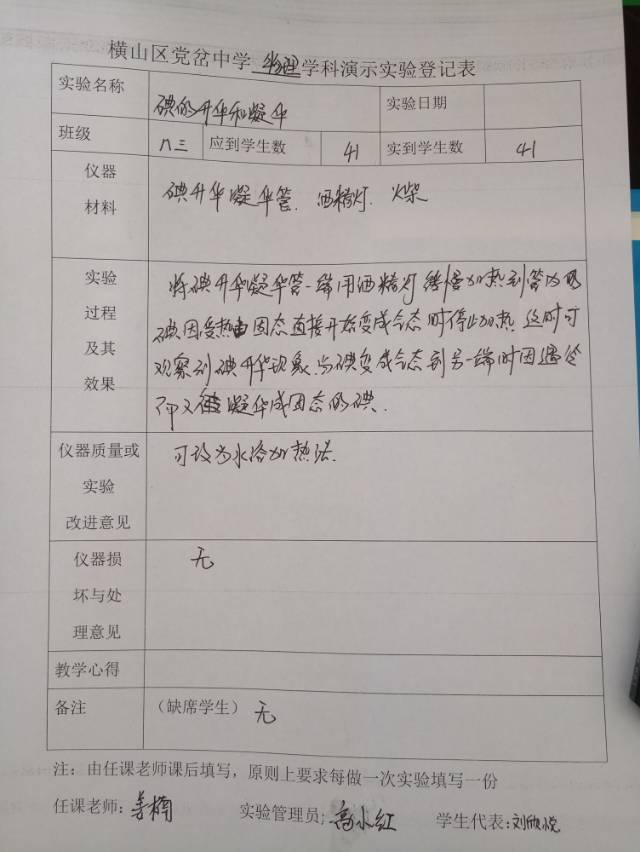 横山区党岔中学 物理 学科演示实验登记表
实验名称 碘的升华和凝华 实验日期
班级 八三 应到学生数 41 实到学生数 41
仪器
材料
碘升华凝华管. 酒精灯. 火柴
实验
过程
及其
效果
将碘升华凝华管一端用酒精灯缓慢加热到管内的
碘因受热由固态直接开始变成气态时停止加热 这时可
观察到碘升华现象 当碘变成气态到另一端时因遇冷
而又被凝华成固态的碘.
仪器质量或
实验
改进意见
可改为水浴加热法.
仪器损
坏与处
理意见
无
教学心得
备注 （缺席学生） 无
注：由任课老师课后填写，原则上要求每做一次实验填写一份
任课老师：姜楠 实验管理员：高小红 学生代表：刘欣悦